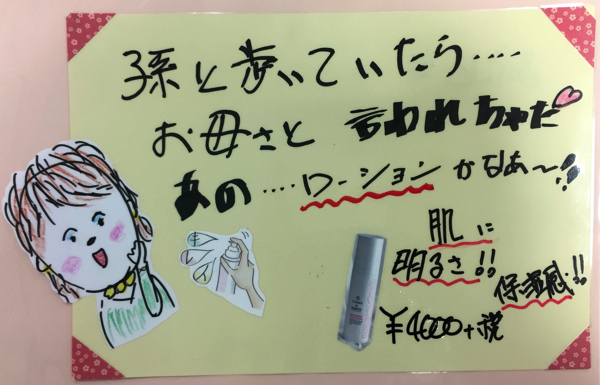 孫と歩いていたら‥‥
お母さと 言われちゃた
あの‥‥ローションかなあ〜!!
肌に
明るさ!!
保湿感!!
¥4000+税